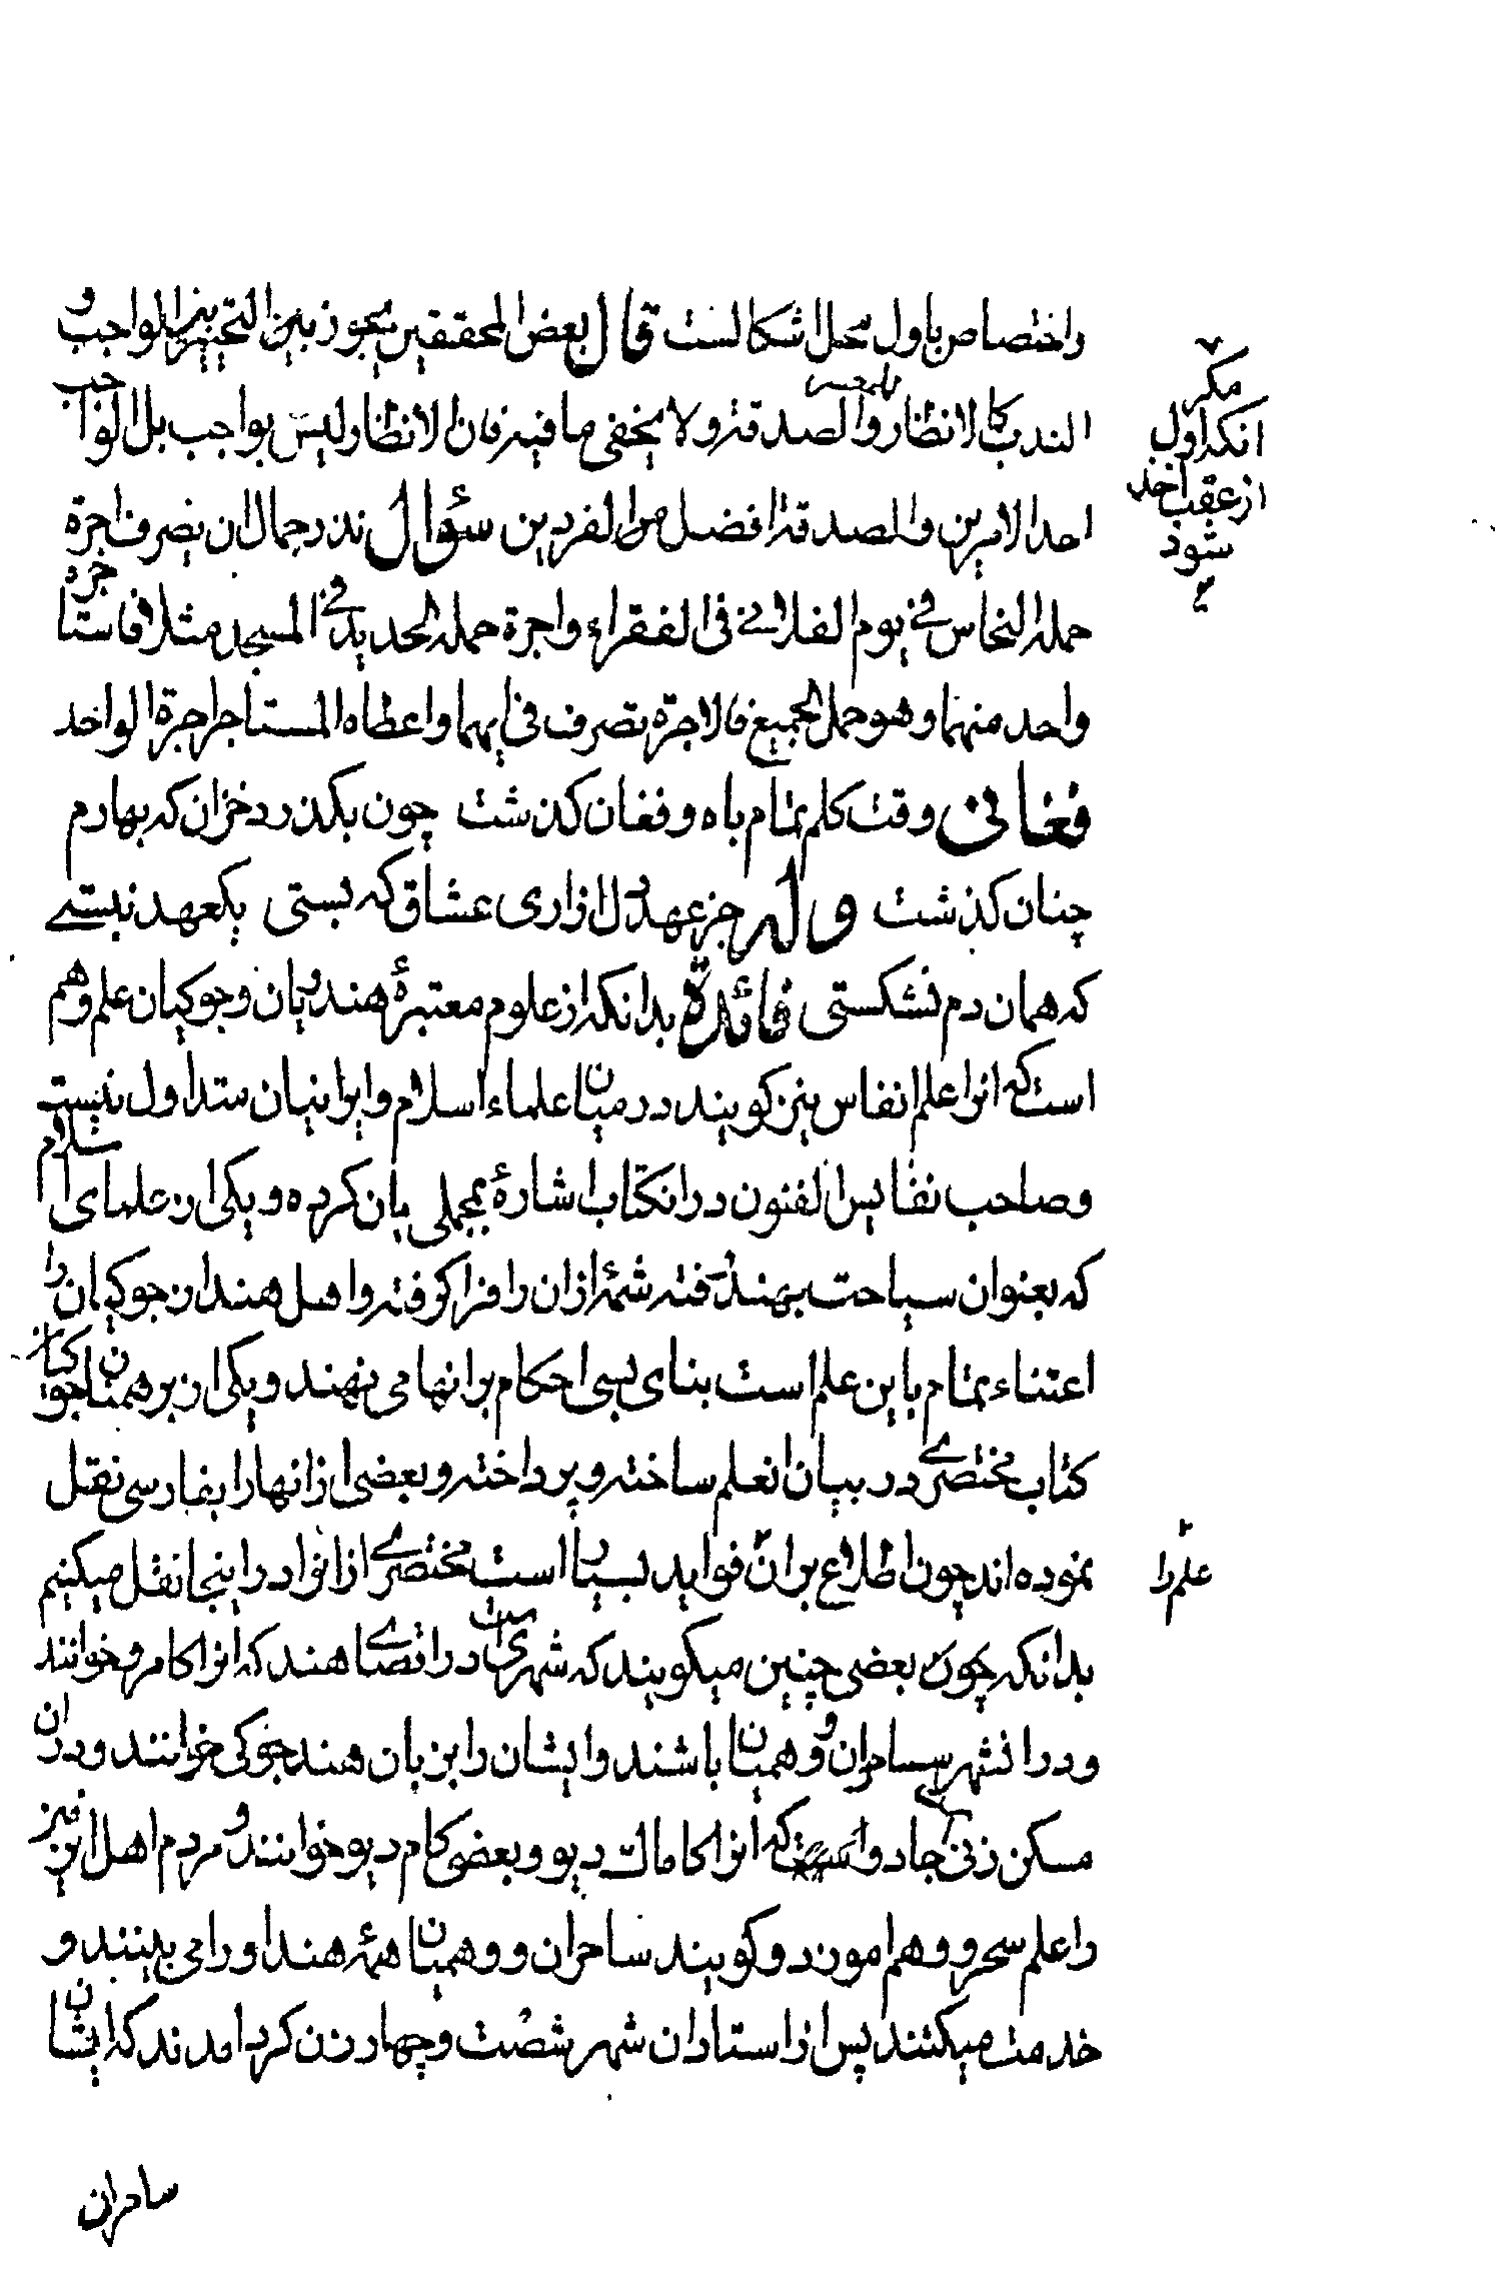 را اختصاص باول محل اشکالست قال بعض المحققین یجوز بین التخییر الواجب و
الندب کالانظار والصدقة ولا یخفی ما فیه فان الانظار لیس بواجب بل الواجب
احد الامرین والصدقة افضل الفردین سؤال نذر حمال ان یصرف اجرة
حمله النحاس فی یوم الفلانی فی الفقراء واجرة حمله الحدید فی المسجد مثلا فاستاجره
واحد منهما وهو حمل الجمیع فالاجرة تصرف فی ایهما واعطاه المستاجر اجرة الواحد
فغانی وقت کلم تمام باه و فغان کذشت چون بکذرد خزان که بهارم
چنان کذشت وله جز عهد دل ازاری عشاق که بستی یکعهد نبستی
که همان دم نشکستی فائدة بدانکه از علوم معتبرهٔ هندویان وجوکیان علم وهم
است که انرا علم انفاس نیز کویند در میان علماء اسلام و ایرانیان متداول نیست
وصاحب نفایس الفنون در انکتاب اشارهٔ مجملی بان کرده و یکی از علمای اسلام
که بعنوان سیاحت بهند رفته شمهٔ ازان را فرا کوفته و اهل هند از جوکیان را
اعتناء تمام باین علم است بنای بسی احکام برانها می نهند و یکی از برهمنان جوکیان
کتاب مختصری در بیان انعلم ساخته و پرداخته و بعضی از انها را بفارسی نقل
نموده اند چون اطلاع بران فواید بسیار است مختصری از انرا در اینجا نقل میکنیم
بدانکه چون بعضی چنین میکویند که شهری است در اقصای هند که انرا کامرو خوانند
و در انشهر ساحران و وهمیان باشند وایشان را بزبان هند جوکی خوانند و دران
مسکن زنی جادو است که انرا کاماک دیو و بعضی کام دیو خوانند و مردم اهل این
را علم سحر و وهم اموزد و کویند ساحران و وهمیان همهٔ هند او را می بینند و
خدمت میکنند پس از استادان شهر شصت و چهار زن کرد امدند که ایشان
ساحران
مکر
انکه اول
از عقب اخذ
شود
علم را